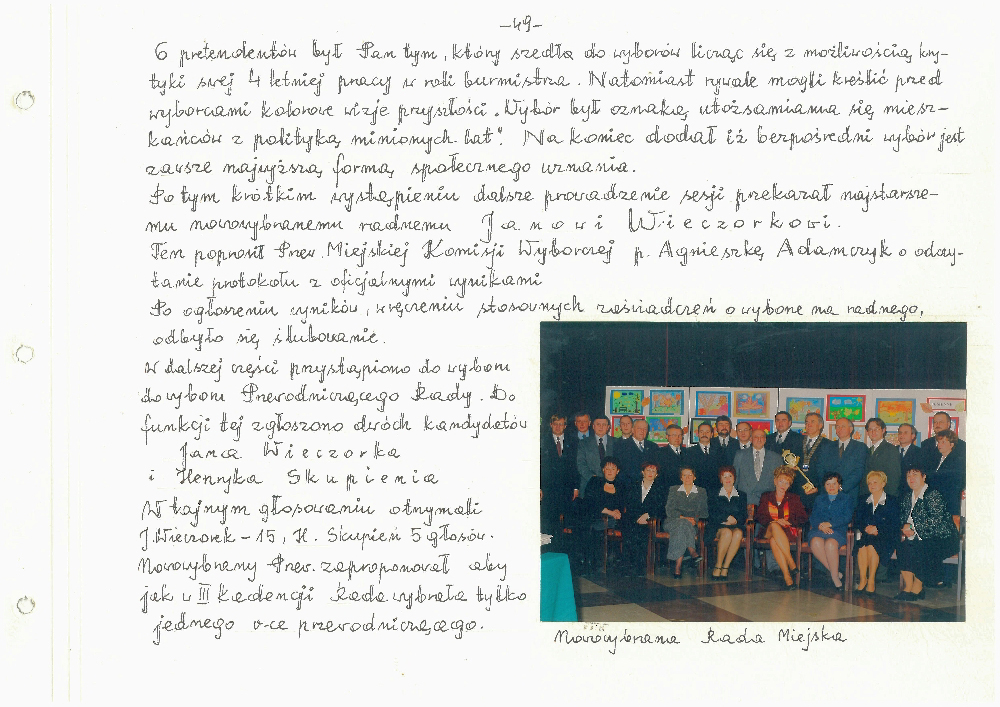 -49-
6 pretendentów był Pan tym, który szedła do wyborów licząc się z możliwością kry-
tyki swej 4 letniej pracy w roli burmistrza. Natomiast rywale mogli kreślić przed
wyborcami kolorowe wizje przyszłości. Wybór był oznaką utożsamiania się miesz-
kańców z polityką minionych lat". Na koniec dodał iż bezpośredni wybór jest
zawsze najwyższą formą społecznego uznania.
Po tym krótkim wystąpieniu dalsze prowadzenie sesji przekazał najstarsze-
mu nowowybranemu radnemu Janowi Wieczorkowi.
Ten poprosił Przew. Miejskiej Komisji Wyborczej p. Agnieszkę Adamczyk o odczy-
tanie protokołu z oficjalnymi wynikami
Po ogłoszeniu wyników, wręczeniu stosownych zaświadczeń o wyborze na radnego,
odbyło się ślubowanie.
W dalszej części przystąpiono do wyboru
do wyboru Przewodniczącego Rady. Do
funkcji tej zgłoszono dwóch kandydatów
Jana Wieczorka
i Henryka Skupienia
W tajnym głosowaniu otrzymali
J. Wieczorek - 15, H. Skupień 5 głosów.
Nowowybrany Przew. zaproponował aby
jak w III kadencji Rada wybrała tylko
jednego v-ce przewodniczącego.
Nowowybrana Rada Miejska